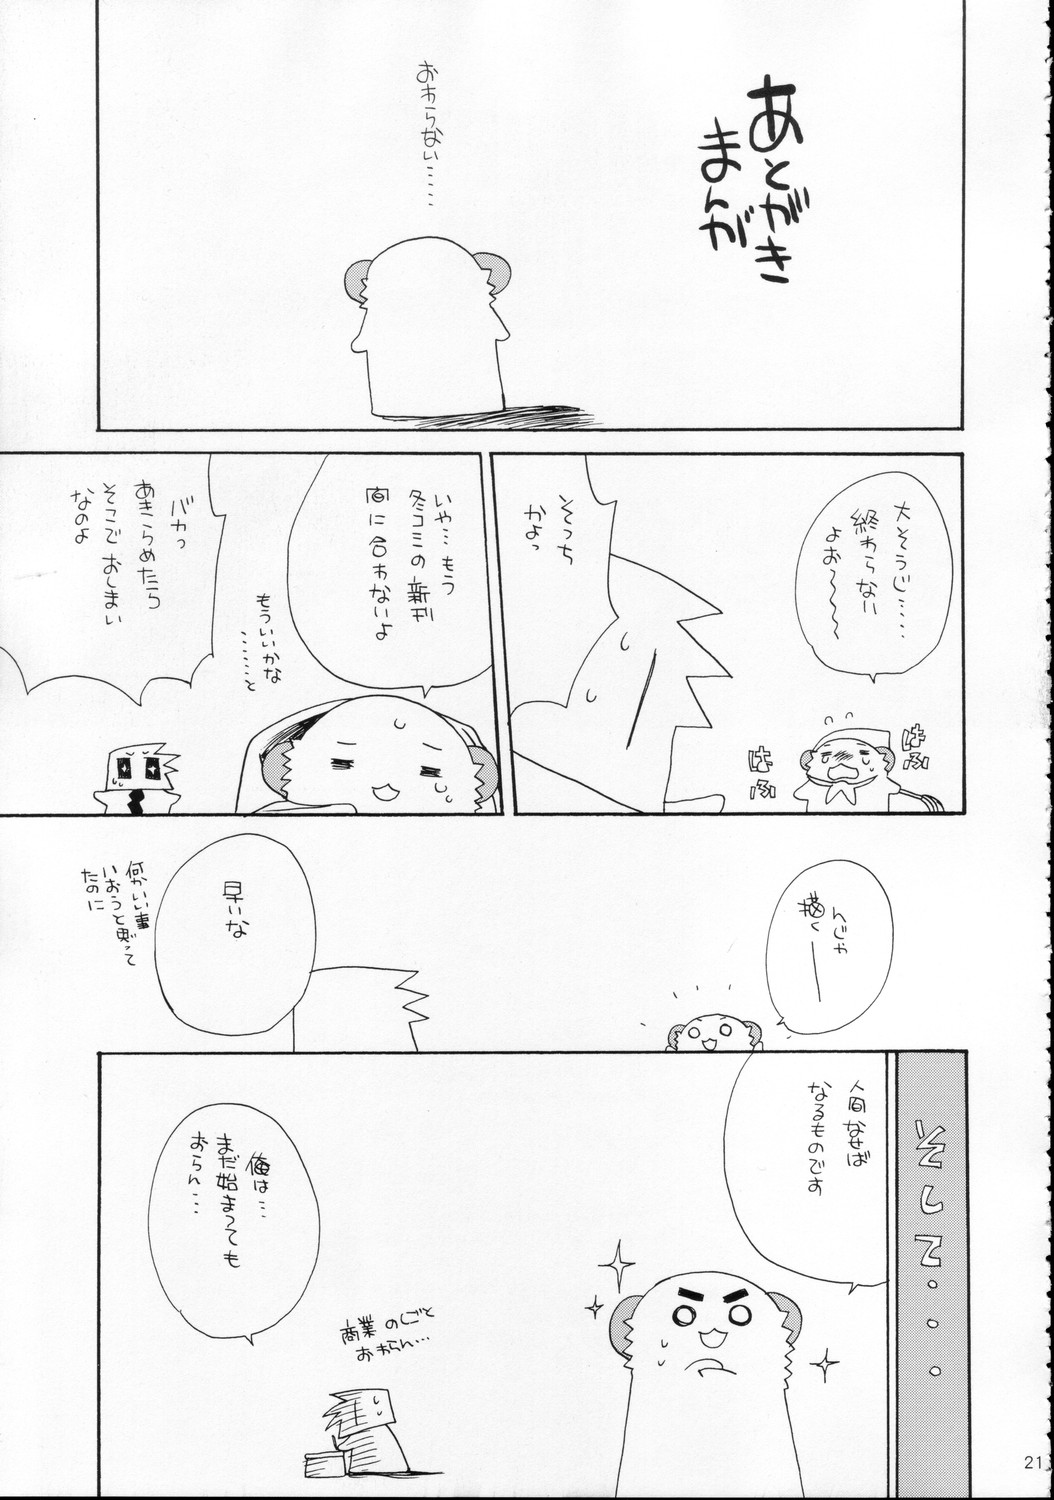 あとがき
まんが
おわらない……
大そうじ……
終わらない
よお～～～
はふ
はふ
そっち
かよっ
いや…もう
冬コミの新刊
間に合わないよ
もういいかな
……と
バカっ
あきらめたら
そこでおしまい
なのよ
んじゃ
描くー
早いな
何かいい事
いおうと思って
たのに
そして・・・・
人間なせば
なるものです
俺は…
まだ始まっても
おらん…
商業のしごと
おわらん…
21